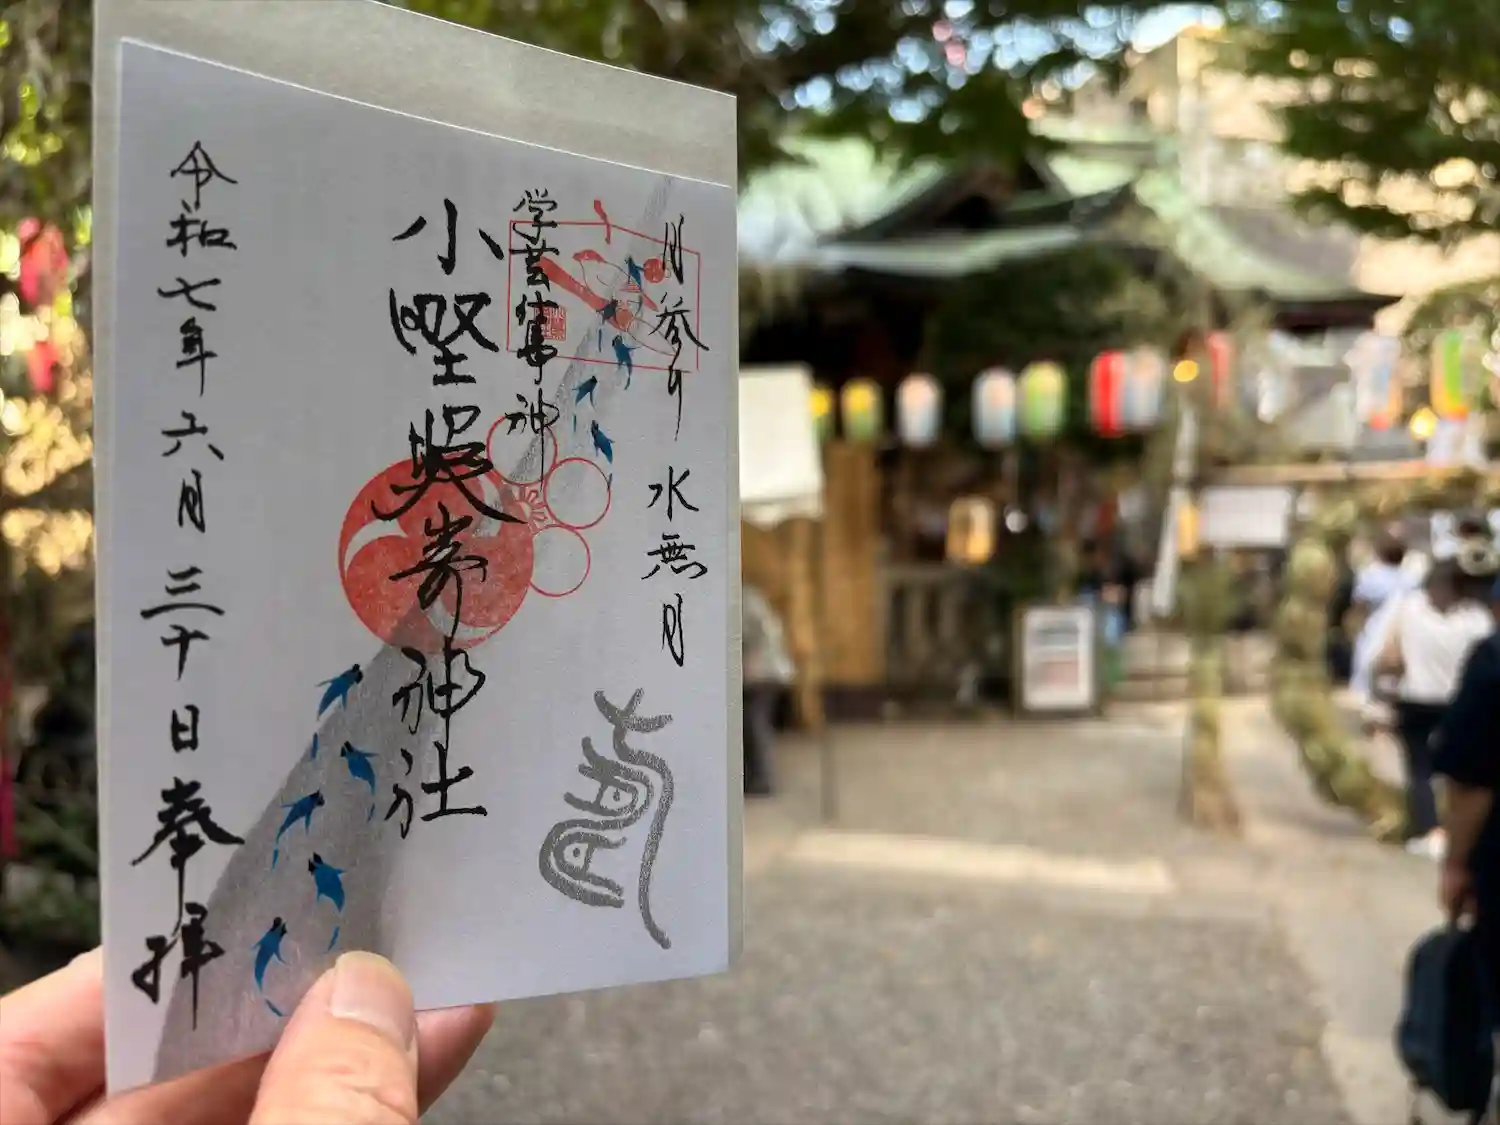 月参り 水無月
学芸仕事神
小野照嵜神社
令和七年六月三十日 奉拝